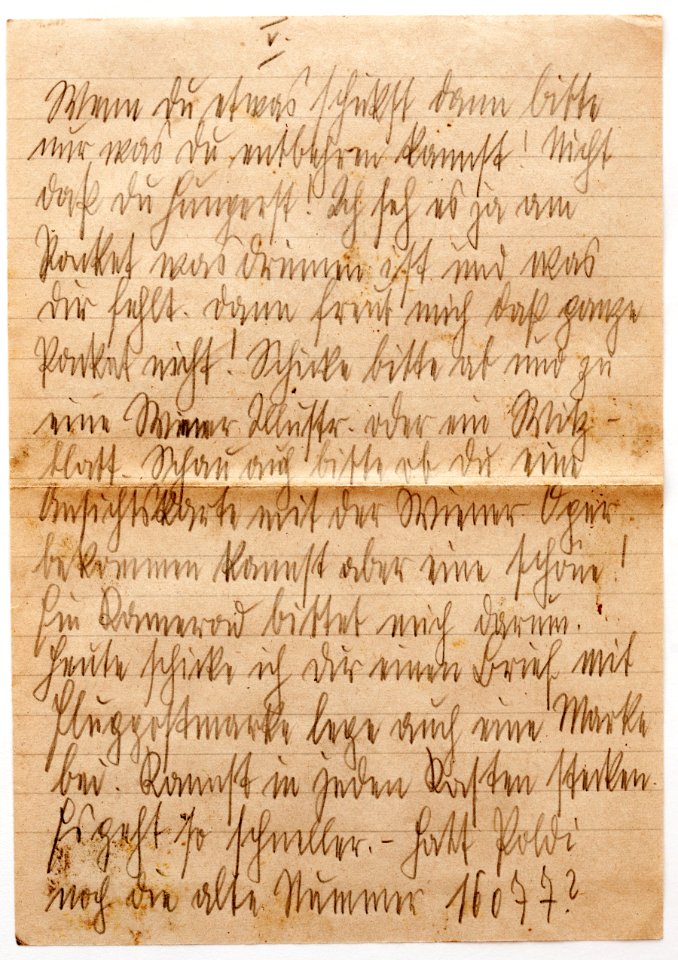 V.
Wenn du etwas schikst dann bitte
nur was du entbehren kannst! Nicht
daß du hungerst! Ich seh es ja am
Packet was drinnen ist und was
dir fehlt. dann freut mich daß ganze
Packet nicht! Schicke bitte ab und zu
eine Wiener Illustr. oder ein Witz-
blatt. Schau auch bitte ob du eine
Ansichtskarte mit der Wiener Oper
bekommen kannst aber eine schöne!
Ein Kamerad bittet mich darum.
Heute schicke ich dir einen Brief mit
Flugpostmarke lege auch eine Marke
bei. Kannst in jeden Kasten stecken.
Es geht so schneller. - Hatt Poldi
noch die alte Nummer 16077?